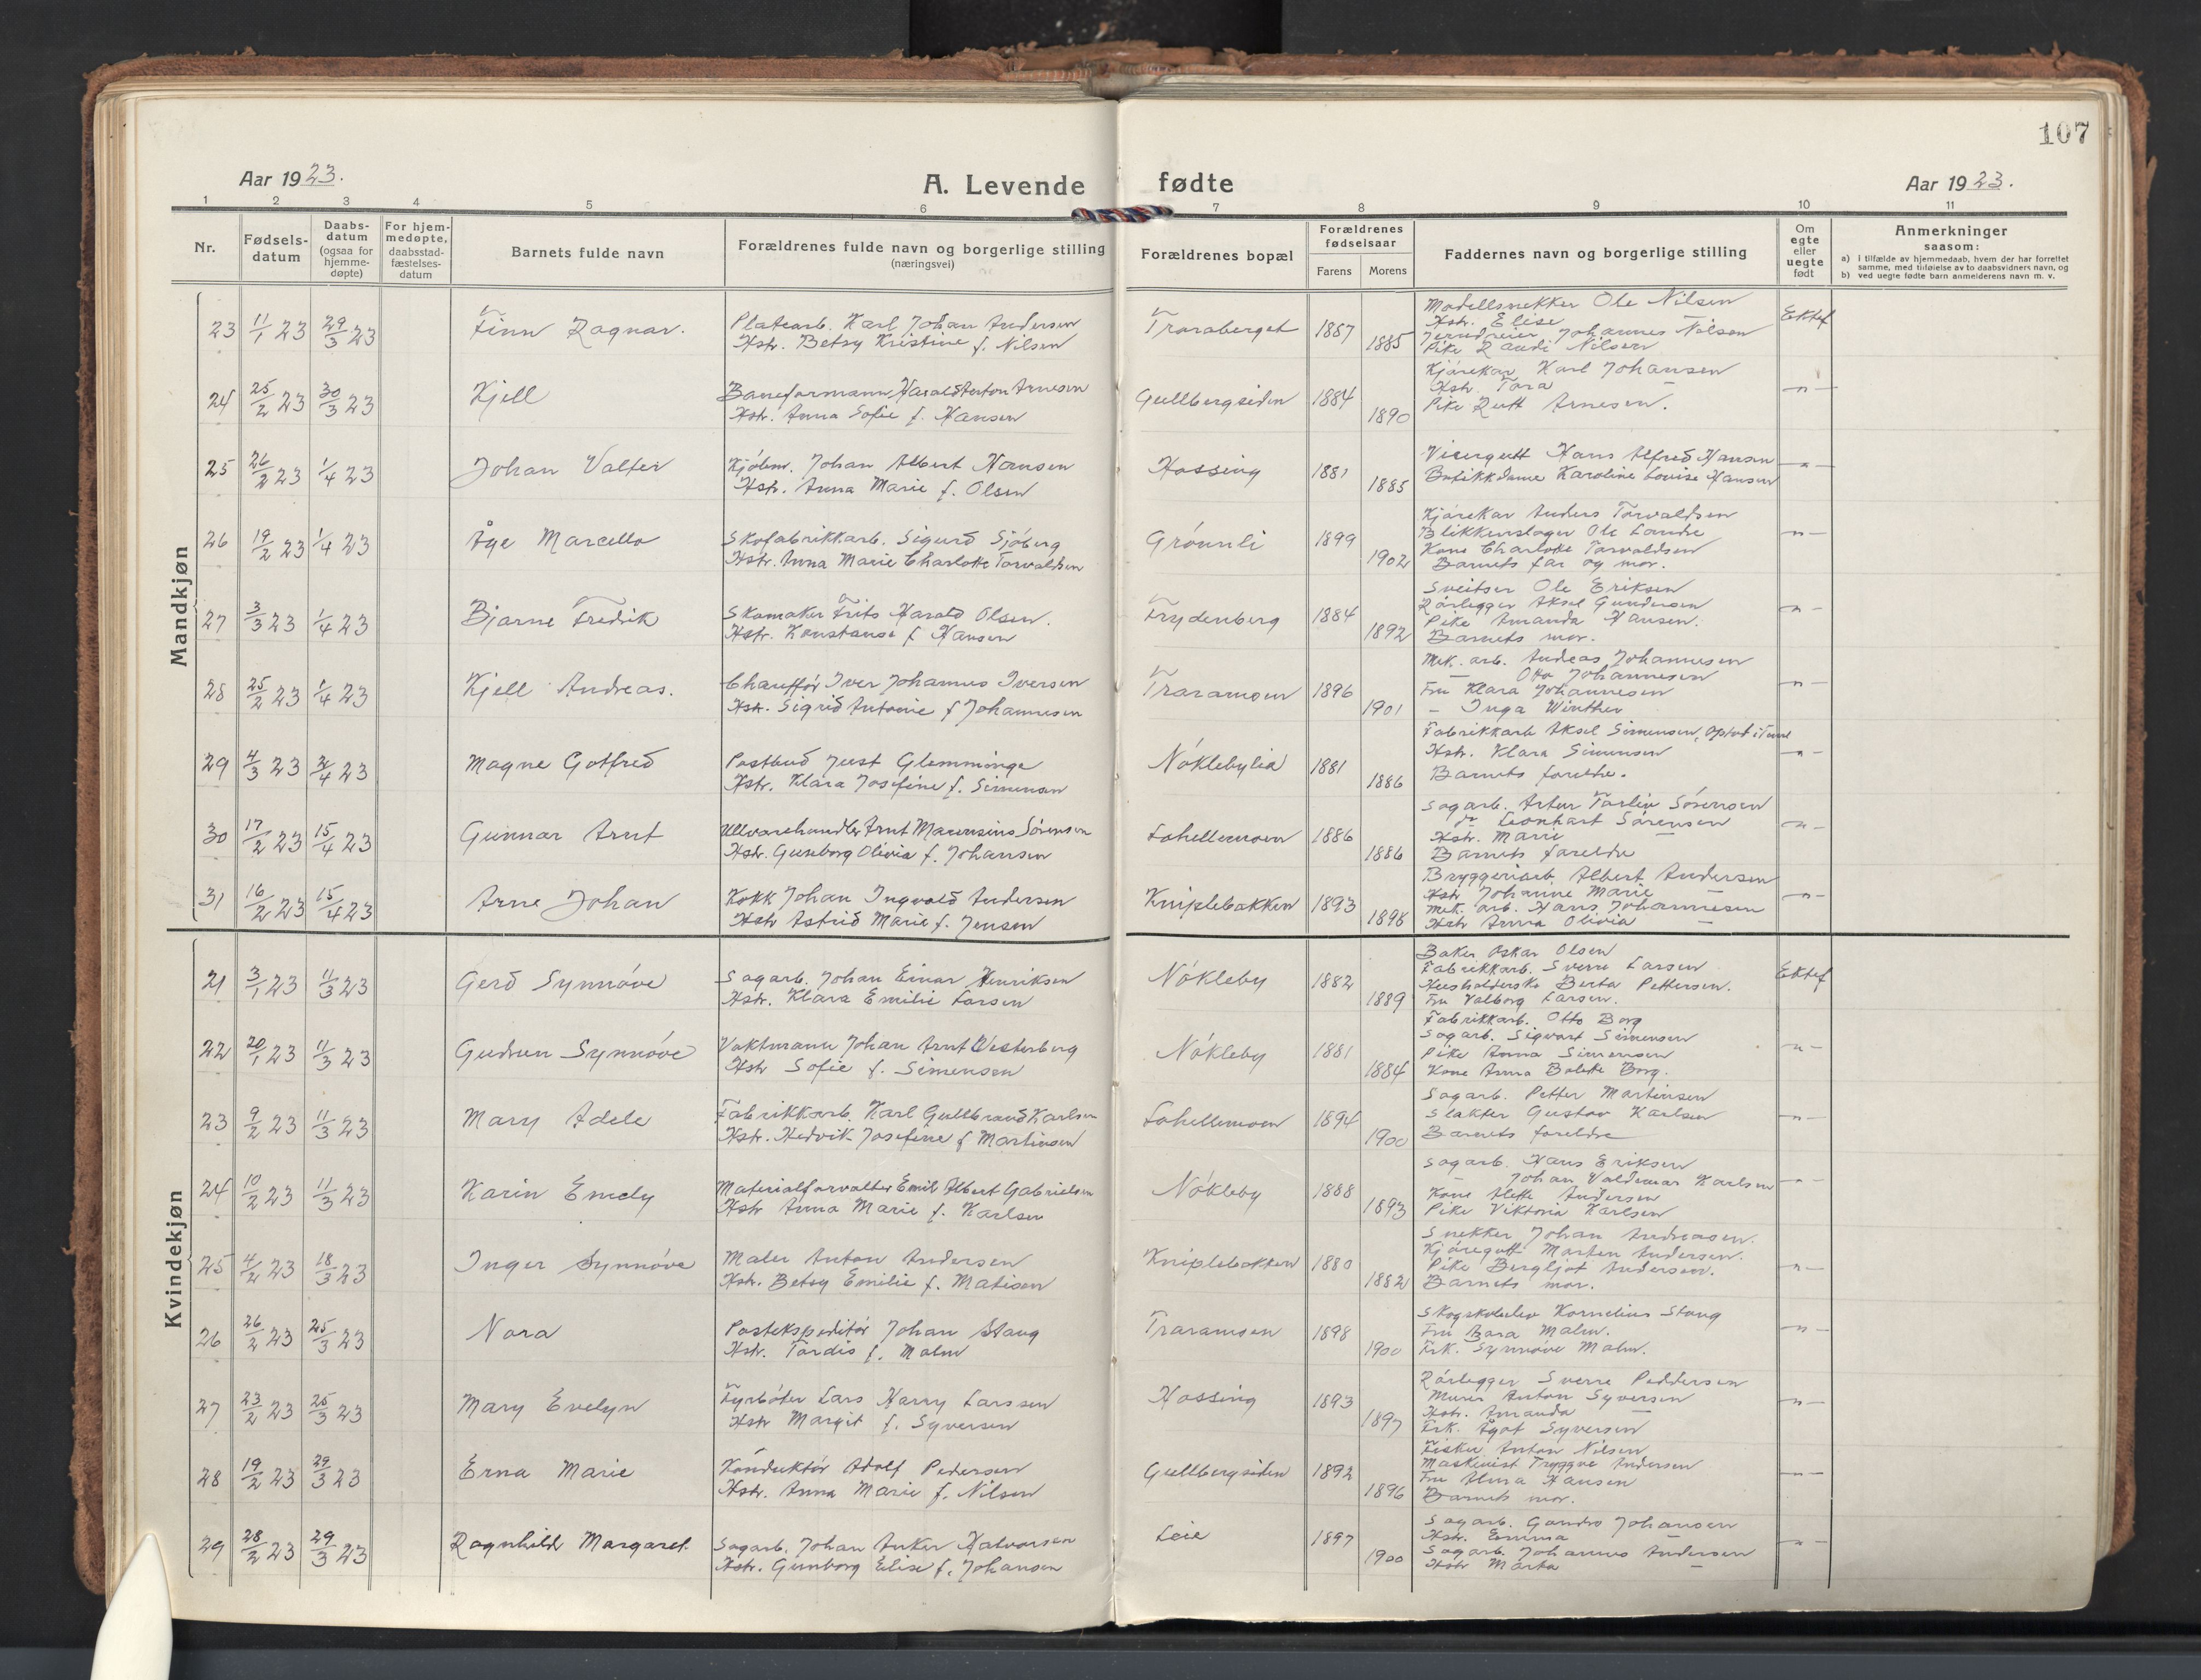 107
Aar 1923.
A. Levende fødte
Aar 1923.
1 2 3 4 5 6 7 8 9 10 11
Nr.
Fødsels-
datum
Daabs-
datum
(ogsaa for
hjemme-
døpte)
For hjem-
medøpte,
daabsstad-
fæstelses-
datum
Barnets fulde navn
Forældrenes fulde navn og borgerlige stilling
(næringsvei)
Forældrenes bopæl
Forældrenes
fødselsaar
Farens Morens
Faddernes navn og borgerlige stilling
Om
egte
eller
uegte
født
Anmerkninger
saasom:
a) i tilfælde av hjemmedaab, hvem der har forrettet
samme, med tilføielse av to daabsvidners navn, og
b) ved uegte fødte barn anmelderens navn m. v.
Mandkjøn
23 11/1 23 29/3 23 Finn Ragnar. Platearb. Karl Johan Andersen
Hstr. Betsy Kristine f. Nilsen
Traraberget 1887 1885
Modellsnekker Ole Nilsen
Hstr. Elise —
Johannes Nilsen
Pike Randi Nilsen
Ektef
24 25/2 23 30/3 23 Kjell Baneformann Harald Anton Arnesen
Hstr. Anna Sofie f. Hansen
Gullbergsiden 1884 1890
Kjørekar Karl Johansen
Hstr. Tora —
Pike Rutt Arnesen.
—"—
25 26/2 23 1/4 23 Johan Valter Kjøbm. Johan Albert Hansen
Hstr. Anna Marie f. Olsen
Hassing 1881 1885
Visergutt Hans Alfred Hansen
Butikkdame Karoline Lovise Hansen
—"—
26 19/2 23 1/4 23 Åge Marcello Skofabrikkarb. Sigurd Sjøberg
Hstr. Anna Marie Charlotte Torvaldsen
Grønnli 1899 1902
Kjørekar Anders Torvaldsen
Blikkenslager Ole Lande
Kone Charlotte Torvaldsen
Barnets far og mor.
—"—
27 3/3 23 1/4 23 Bjarne Fredrik Skomaker Frits Harald Olsen.
Hstr. Konstanse f Hansen
Frydenberg 1884 1892
Sveitser Ole Eriksen
Rørlegger Aksel Gundersen
Pike Amanda Hansen.
Barnets mor.
—"—
28 25/2 23 1/4 23 Kjell Andreas. Chauffør Iver Johannes Iversen
Hstr. Sigrid Antonie f Johannesen
Traramoen 1896 1901
Mek. arb. Andreas Johannesen
— Otto Johannesen
Fru Klara Johannesen
– Inga Winther
—"—
29 4/3 23 2/4 23 Magne Gotfred Postbud Just Glemminge
Hstr. Klara Josefine f. Simensen
Nøklebylia 1881 1886
Fabrikkarb Aksel Simensen,
Hstr. Klara Simensen
Barnets foreldre.
—"—
30 17/2 23 15/4 23 Gunnar Arnt Ullvarehandler Arnt Marensius Sørensen
Hstr. Guneborg Olivia f. Johansen
Lahellemoen 1886 1886
Sagarb. Artur Torleiv Sørensen
do Leonhart Sørensen
Hstr. Marie —
Barnets foreldre
—"—
31 16/2 23 15/4 23 Arne Johan Kokk Johan Ingvald Andersen
Hstr Astrid Marie f. Jensen
Kniplebakken 1893 1898
Bryggeriarb Albert Andersen
Hstr Johanne Marie —
Mek. arb. Hans Johannesen
Hstr Anna Olivia —
—"—
Kvindekjøn
21 3/1 23 11/3 23 Gerd Synnøve Sagarb. Johan Einar Henriksen
Hstr. Klara Emilie Larsen
Nøkleby 1882 1889
Baker Oskar Olsen
Fabrikkarb. Sverre Larsen
Husholderske Berta Pettersen.
Fru Valborg Larsen.
Ektef
22 20/1 23 11/3 23 Gudrun Synnøve Vaktmann Johan Arnt Westerberg
Hstr Sofie f. Simensen
Nøkleby 1881 1884
Fabrikkarb. Otto Borg
Sagarb. Sigvart Simensen
Pike Anna Simensen
Kone Anna Bolette Borg.
—"—
23 9/2 23 11/3 23 Mary Adele Fabrikkarb. Karl Gullbrand Karlsen
Hstr. Hedvik Josefine f Martinsen
Lahellemoen 1894 1900
Sagarb. Petter Martinsen
Slakter Gustav Karlsen
Barnets foreldre
—"—
24 10/2 23 11/3 23 Karin Emely Materialforvalter Emil Albert Gabrielsen
Hstr Anna Marie f. Karlsen
Nøkleby 1888 1893
Sagarb. Hans Eriksen
— Johan Valdemar Karlsen
Kone Alette Andersen
Pike Viktoria Karlsen
—"—
25 4/2 23 18/3 23 Inger Synnøve Maler Anton Andersen
Hstr. Betsy Emilie f. Matisen
Kniplebakken 1880 1882
Snekker Johan Andreasen.
Kjøregutt Marten Andersen.
Pike Bergljot Andersen.
Barnets mor.
—"—
26 26/2 23 25/3 23 Nora Postekspeditør Johan Stang
Hstr. Tordis f. Malm
Traramoen 1898 1900
Skogskoleelev Kornelius Stang
Fru Bara Malm.
Frk. Synnøve Malm.
—"—
27 23/2 23 25/3 23 Mary Evelyn Fyrbøter Lars Harry Larssen
Hstr Margit f. Syversen
Hassing 1893 1897
Rørlegger Sverre Peddersen
Murer Anton Syversen
Hstr. Amanda —
Frk. Ågot Syversen
—"—
28 19/2 23 29/3 23 Erna Marie Konduktør Adolf Pedersen
Hstr. Anna Marie f. Nilsen
Gullbergsiden 1892 1896
Fisker Anton Nilsen
Maskinist Tryggve Andersen
Fru Alma Hansen
Barnets mor.
—"—
29 28/2 23 29/3 23 Ragnhild Margaret. Sagarb. Johan Anker Halvorsen
Hstr. Gunborg Elise f. Johansen
Leie 1897 1900
Sagarb. Johansen
Hstr. Emma —
Sagarb. Johannes Andersen
Hstr Marta —
—"—